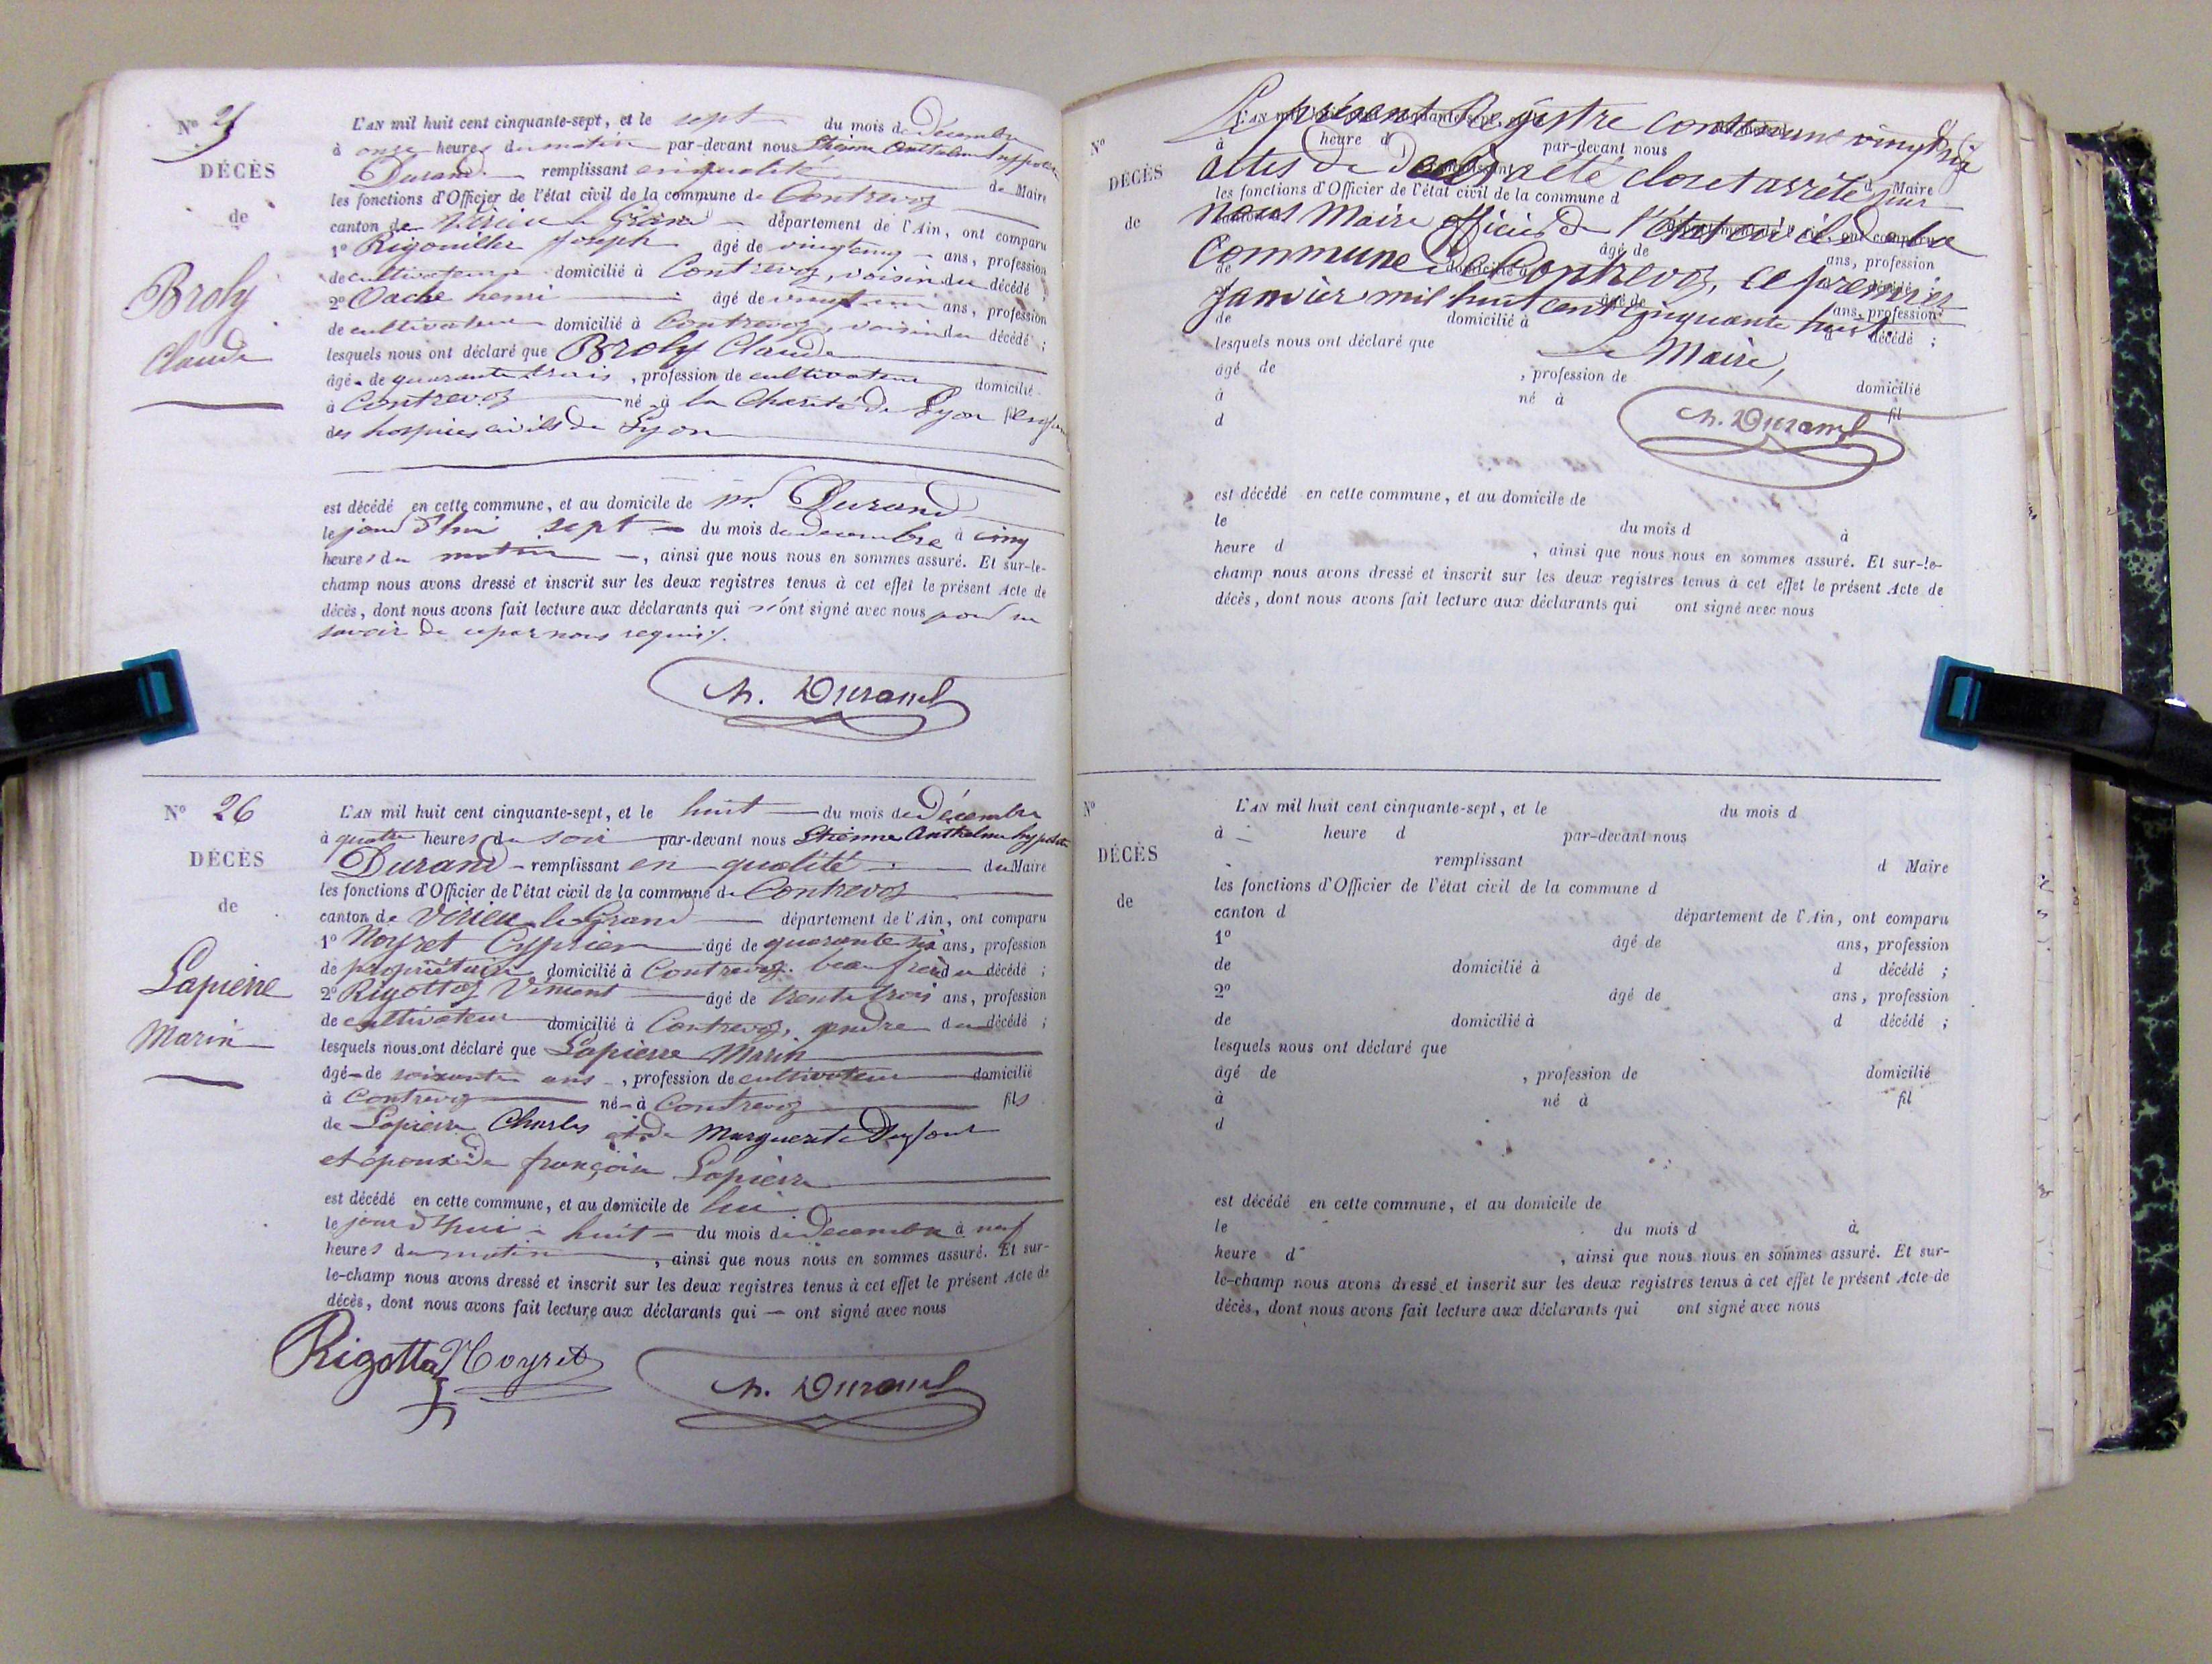 N° 25
DÉCÈS
de
Broly
Claude
L'AN mil huit cent cinquante-sept, et le sept du mois de Décembre
à onze heures du matin par-devant nous Etienne Anthelme hyppolite
Durand remplissant en qualité de Maire
les fonctions d'Officier de l'état civil de la commune de Contrevoz
canton de Virieu le Grand département de l'Ain, ont comparu
1° Rigouillet Joseph âgé de vingt cinq ans, profession
de cultivateur domicilié à Contrevoz, voisin du décédé ;
2° Vache henri âgé de vingt un ans, profession
de cultivateur domicilié à Contrevoz, voisin du décédé ;
lesquels nous ont déclaré que Broly Claude
âgé de quarante trois, profession de cultivateur domicilié
à Contrevoz né à la Charité de Lyon
des hospices civils de Lyon
est décédé en cette commune, et au domicile de Mr. Durand
le jour d'hui sept du mois de decembre à cinq
heures du matin, ainsi que nous nous en sommes assuré. Et sur-le-
champ nous avons dressé et inscrit sur les deux registres tenus à cet effet le présent Acte de
décès, dont nous avons fait lecture aux déclarants qui n'ont signé avec nous pour ne
savoir de ce par nous requis.
h. Durand
N° 26
DÉCÈS
de
Lapierre
Marin
L'AN mil huit cent cinquante-sept, et le huit du mois de Décembre
à quatre heures du soir par-devant nous Etienne Anthelme hyppolite
Durand remplissant en qualité de Maire
les fonctions d'Officier de l'état civil de la commune de Contrevoz
canton de Virieu le Grand département de l'Ain, ont comparu
1° Noyret Cyprien âgé de quarante six ans, profession
de propriétaire domicilié à Contrevoz. beau frère du décédé ;
2° Rigottaz Vincent âgé de trente trois ans, profession
de cultivateur domicilié à Contrevoz, gendre du décédé ;
lesquels nous ont déclaré que Lapierre Marin
âgé de soixante ans, profession de cultivateur domicilié
à Contrevoz né à Contrevoz fils
de Lapierre Charles et de Marguerite
et époux de françoise Lapierre
est décédé en cette commune, et au domicile de lui
le jour d'hui huit du mois de Decembre à neuf
heures du matin, ainsi que nous nous en sommes assuré. Et sur-
le-champ nous avons dressé et inscrit sur les deux registres tenus à cet effet le présent Acte de
décès, dont nous avons fait lecture aux déclarants qui ont signé avec nous
Rigottaz Noyret
h. Durand
Le présent Registre contenant vingt six
actes de Décès a été clos et arrêté par
nous Maire officier de l'état civil de la
Commune de Contrevoz, ce premier
Janvier mil huit cent cinquante huit.
Le Maire,
h. Durand
N°
DÉCÈS
de
heure d par-devant nous
les fonctions d'Officier de l'état civil de la commune d
âgé de ans, profession
de domicilié à d décédé ;
lesquels nous ont déclaré que
âgé de , profession de domicilié
à né à fil
d
est décédé en cette commune, et au domicile de
le du mois d à
heure d , ainsi que nous nous en sommes assuré. Et sur-le-
champ nous avons dressé et inscrit sur les deux registres tenus à cet effet le présent Acte de
décès, dont nous avons fait lecture aux déclarants qui ont signé avec nous
N°
DÉCÈS
de
L'AN mil huit cent cinquante-sept, et le du mois d
à heure d par-devant nous
remplissant d Maire
les fonctions d'Officier de l'état civil de la commune d
canton d département de l'Ain, ont comparu
1° âgé de ans, profession
de domicilié à d décédé ;
2° âgé de ans, profession
de domicilié à d décédé ;
lesquels nous ont déclaré que
âgé de , profession de domicilié
à né à fil
d
est décédé en cette commune, et au domicile de
le du mois d à
heure d , ainsi que nous nous en sommes assuré. Et sur-
le-champ nous avons dressé et inscrit sur les deux registres tenus à cet effet le présent Acte de
décès, dont nous avons fait lecture aux déclarants qui ont signé avec nous